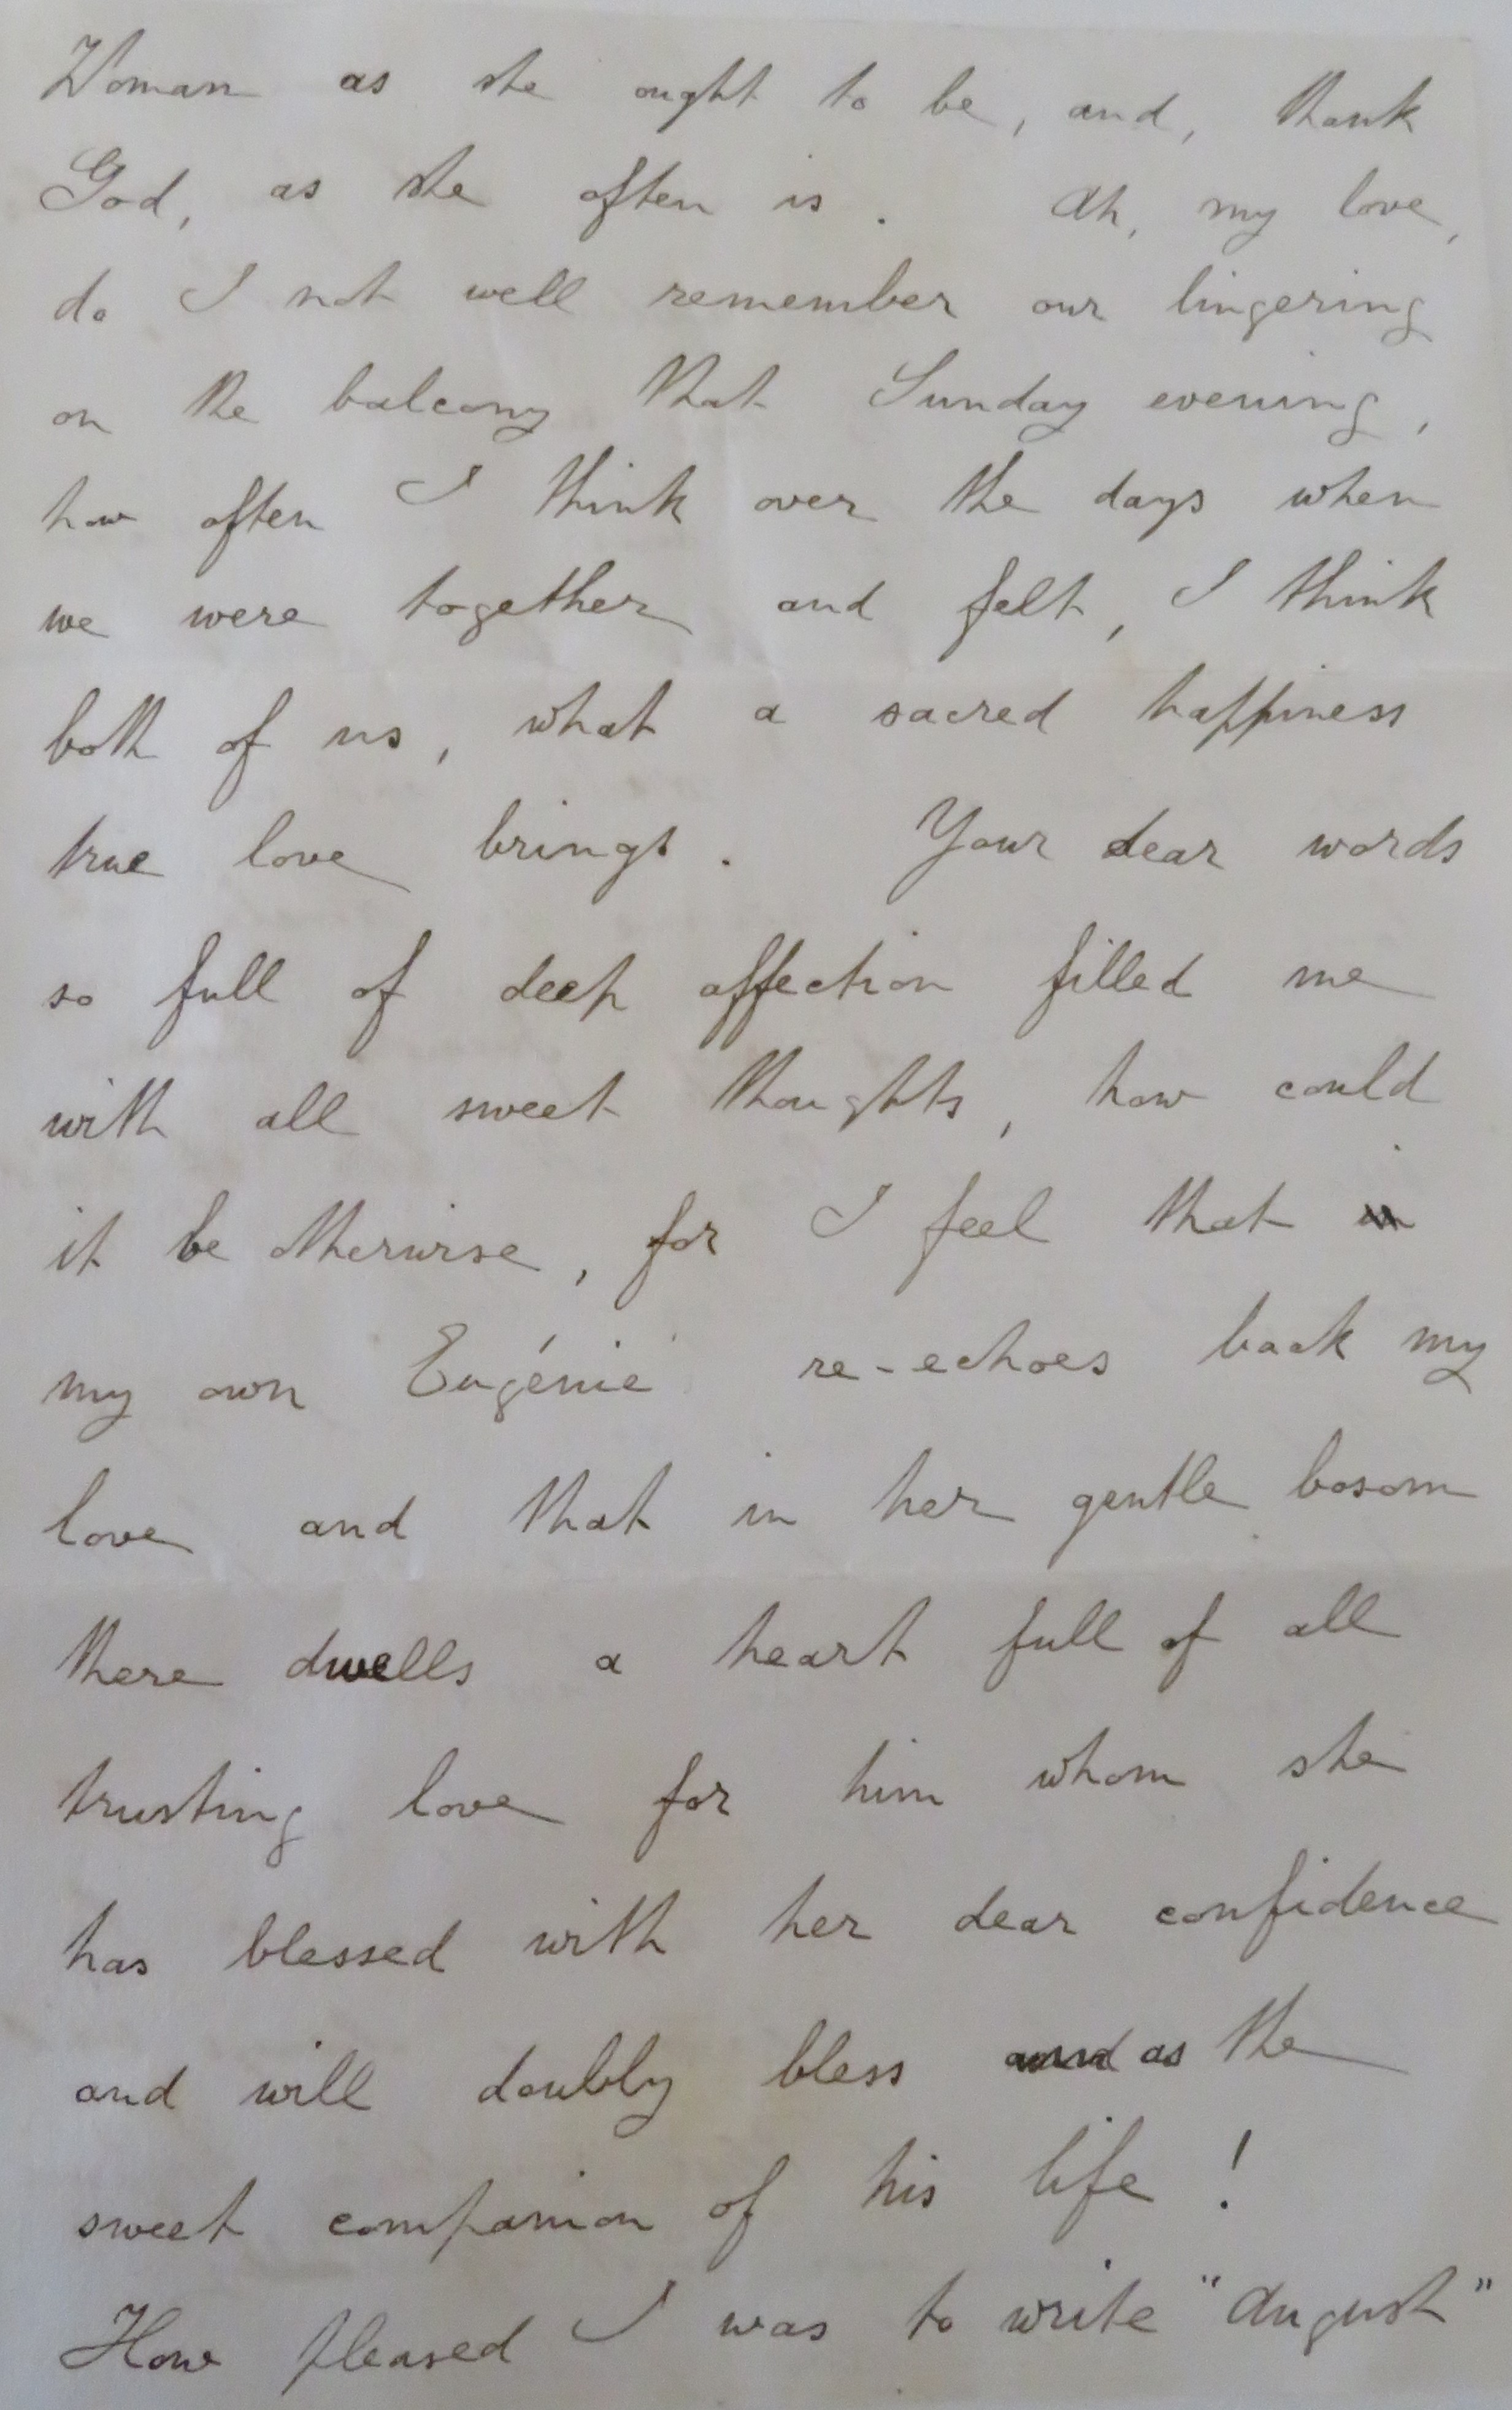 Woman as she ought to be, and, thank
God, as she often is. Ah, my love,
do I not well remember our lingering
on the balcony that Sunday evening,
how often I think over the days when
we were together and felt, I think
both of us, what a sacred happiness
true love brings. Your dear words
so full of deep affection filled me
with all sweet thoughts, how could
it be otherwise, for I feel that
my own Eugénie re-echoes back my
love and that in her gentle bosom
there dwells a heart full of all
trusting love for him whom she
has blessed with her dear confidence
and will doubly bless as the
sweet companion of his life!
How pleased I was to write "August"